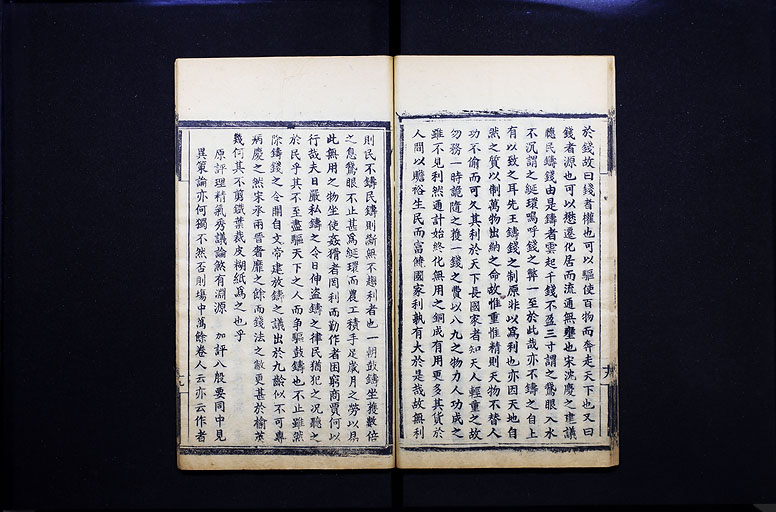 於錢故曰錢者權也可以驅使百物而奔走天下也又曰
錢者源也可以懋遷化居而流通無壅也宋沈慶之建議
聽民鑄錢由是鑄者雲起千錢不盈三寸謂之鵞眼入水
不沉謂之綖環嗚呼錢之弊一至於此哉亦不鑄之自上
有以致之耳先王鑄錢之制原非以爲利也亦因天地自
然之質以制萬物出納之命故惟重惟精則天物不替人
功不偷而可久其利於天下長國家者知天人輕重之故
勿務一時詭隨之獲一錢之費以八九之物力人功成之
雖不見利然通計始終化無用之銅成有用更多其貨於
人間以贍裕生民而富饒國家利孰有大於是哉故無利
則民不鑄民鑄則斷無不趨利者也一朝鼓鑄坐獲數倍
之息鵞眼不止甚爲綖環而農工積手足歲月之勞以易
此無用之物坐使姦猾者罔利而勤作者困窮商賈何以
行哉夫日嚴私鑄之令日伸盜鑄之律民猶犯之况聽之
於民乎其不至盡驅天下之人而争驅鼓鑄也不止雖然
除鑄錢之令開自文帝建放鑄之議出於九齡似不可專
病慶之然宋承兩晉奢靡之餘而錢法之敝更甚於榆莢
幾何其不剪鐵葉裁皮糊紙爲之也乎
原評理精氣秀議論煞有淵源　加評八股要同中見
異策論亦何獨不然否則塲中萬餘卷人云亦云作者